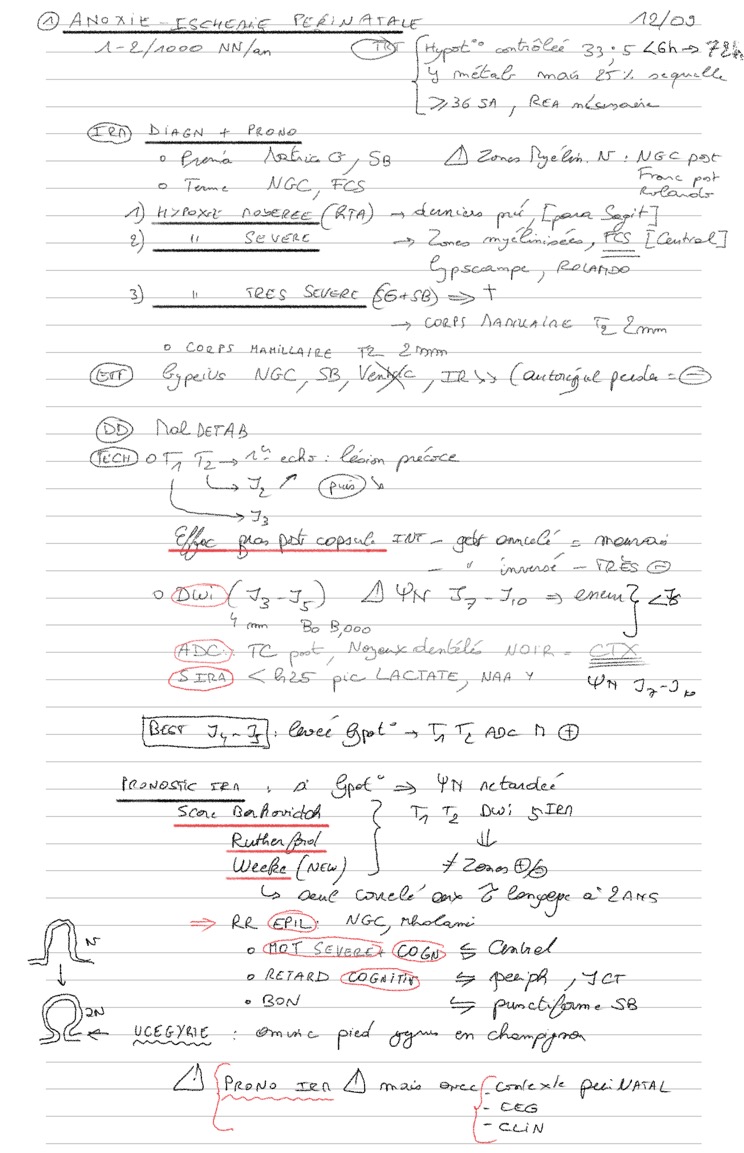 ① ANOXIE - ISCHEMIE PERINATALE 12/09
1-2/1000 NN/an TRT Hypot°° contrôlée 33,5 <6h → 72h
métab mais 25% sequelle
⩾36 SA, REA nécessaire
IRM DIAGN + PRONO
° Préma Matrice G, SB ⚠ Zones Myélin. N : NGC post
° Terme NGC, FCS post
Rolando
1) HYPOXIE MODEREE → derniers pré, [para Sagit]
2) " SEVERE → Zones myélinisées, FCS [Central]
ROLANDO
3) " TRES SEVERE (SG+SB) ⇒ †
→ CORPS MAMILLAIRE T2 2mm
° CORPS MAMILLAIRE T2 2mm
ETF NGC, SB, IR ↘↘ (autorégul perdue = ⊖
DD Mal DETAB
TECH ° T1 T2 → 1er echo : lésion précoce
→ J2 ↗ puis ↘
→ J3
Effac bras post capsule INT - annelé = mauvais
- " inversé - TRÈS ⊖
° DWI (J3-J5) ⚠ ΨN J7-J10 ⇒ erreur
4 mm
ADC : TC post, Noyaux dentelés NOIR = CTX
SIRM < h25 pic LACTATE, NAA ΨN J7-J10
BEST J4-J5 : levée → T1 T2 ADC ⊕
PRONOSTIC IRM : ⇒ ΨN retardée
Score Barkovitch T1 T2 DWI IRM
Rutherford ⇓
Weeke (NEW) ≠ Zones ⊕/⊖
↳ seul corrélé aux langage à 2 ANS
⇒ RR EPIL : NGC,
° MOT SEVERE + COGN ⇆ Central
N ° RETARD COGNITIF ⇆ periph, JCT
° BON ⇆ punctiforme SB
2N ← ULEGYRIE : pied gyrus en champignon
⚠ PRONO IRM ⚠ mais avec - contexte periNATAL
- EEG
- CLIN